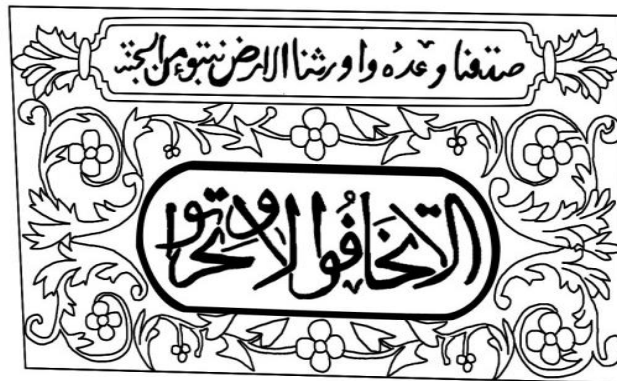 صدقنا وعده واورثنا الارض نتبوء من الجنة
الا تخافوا ولا تحزنوا